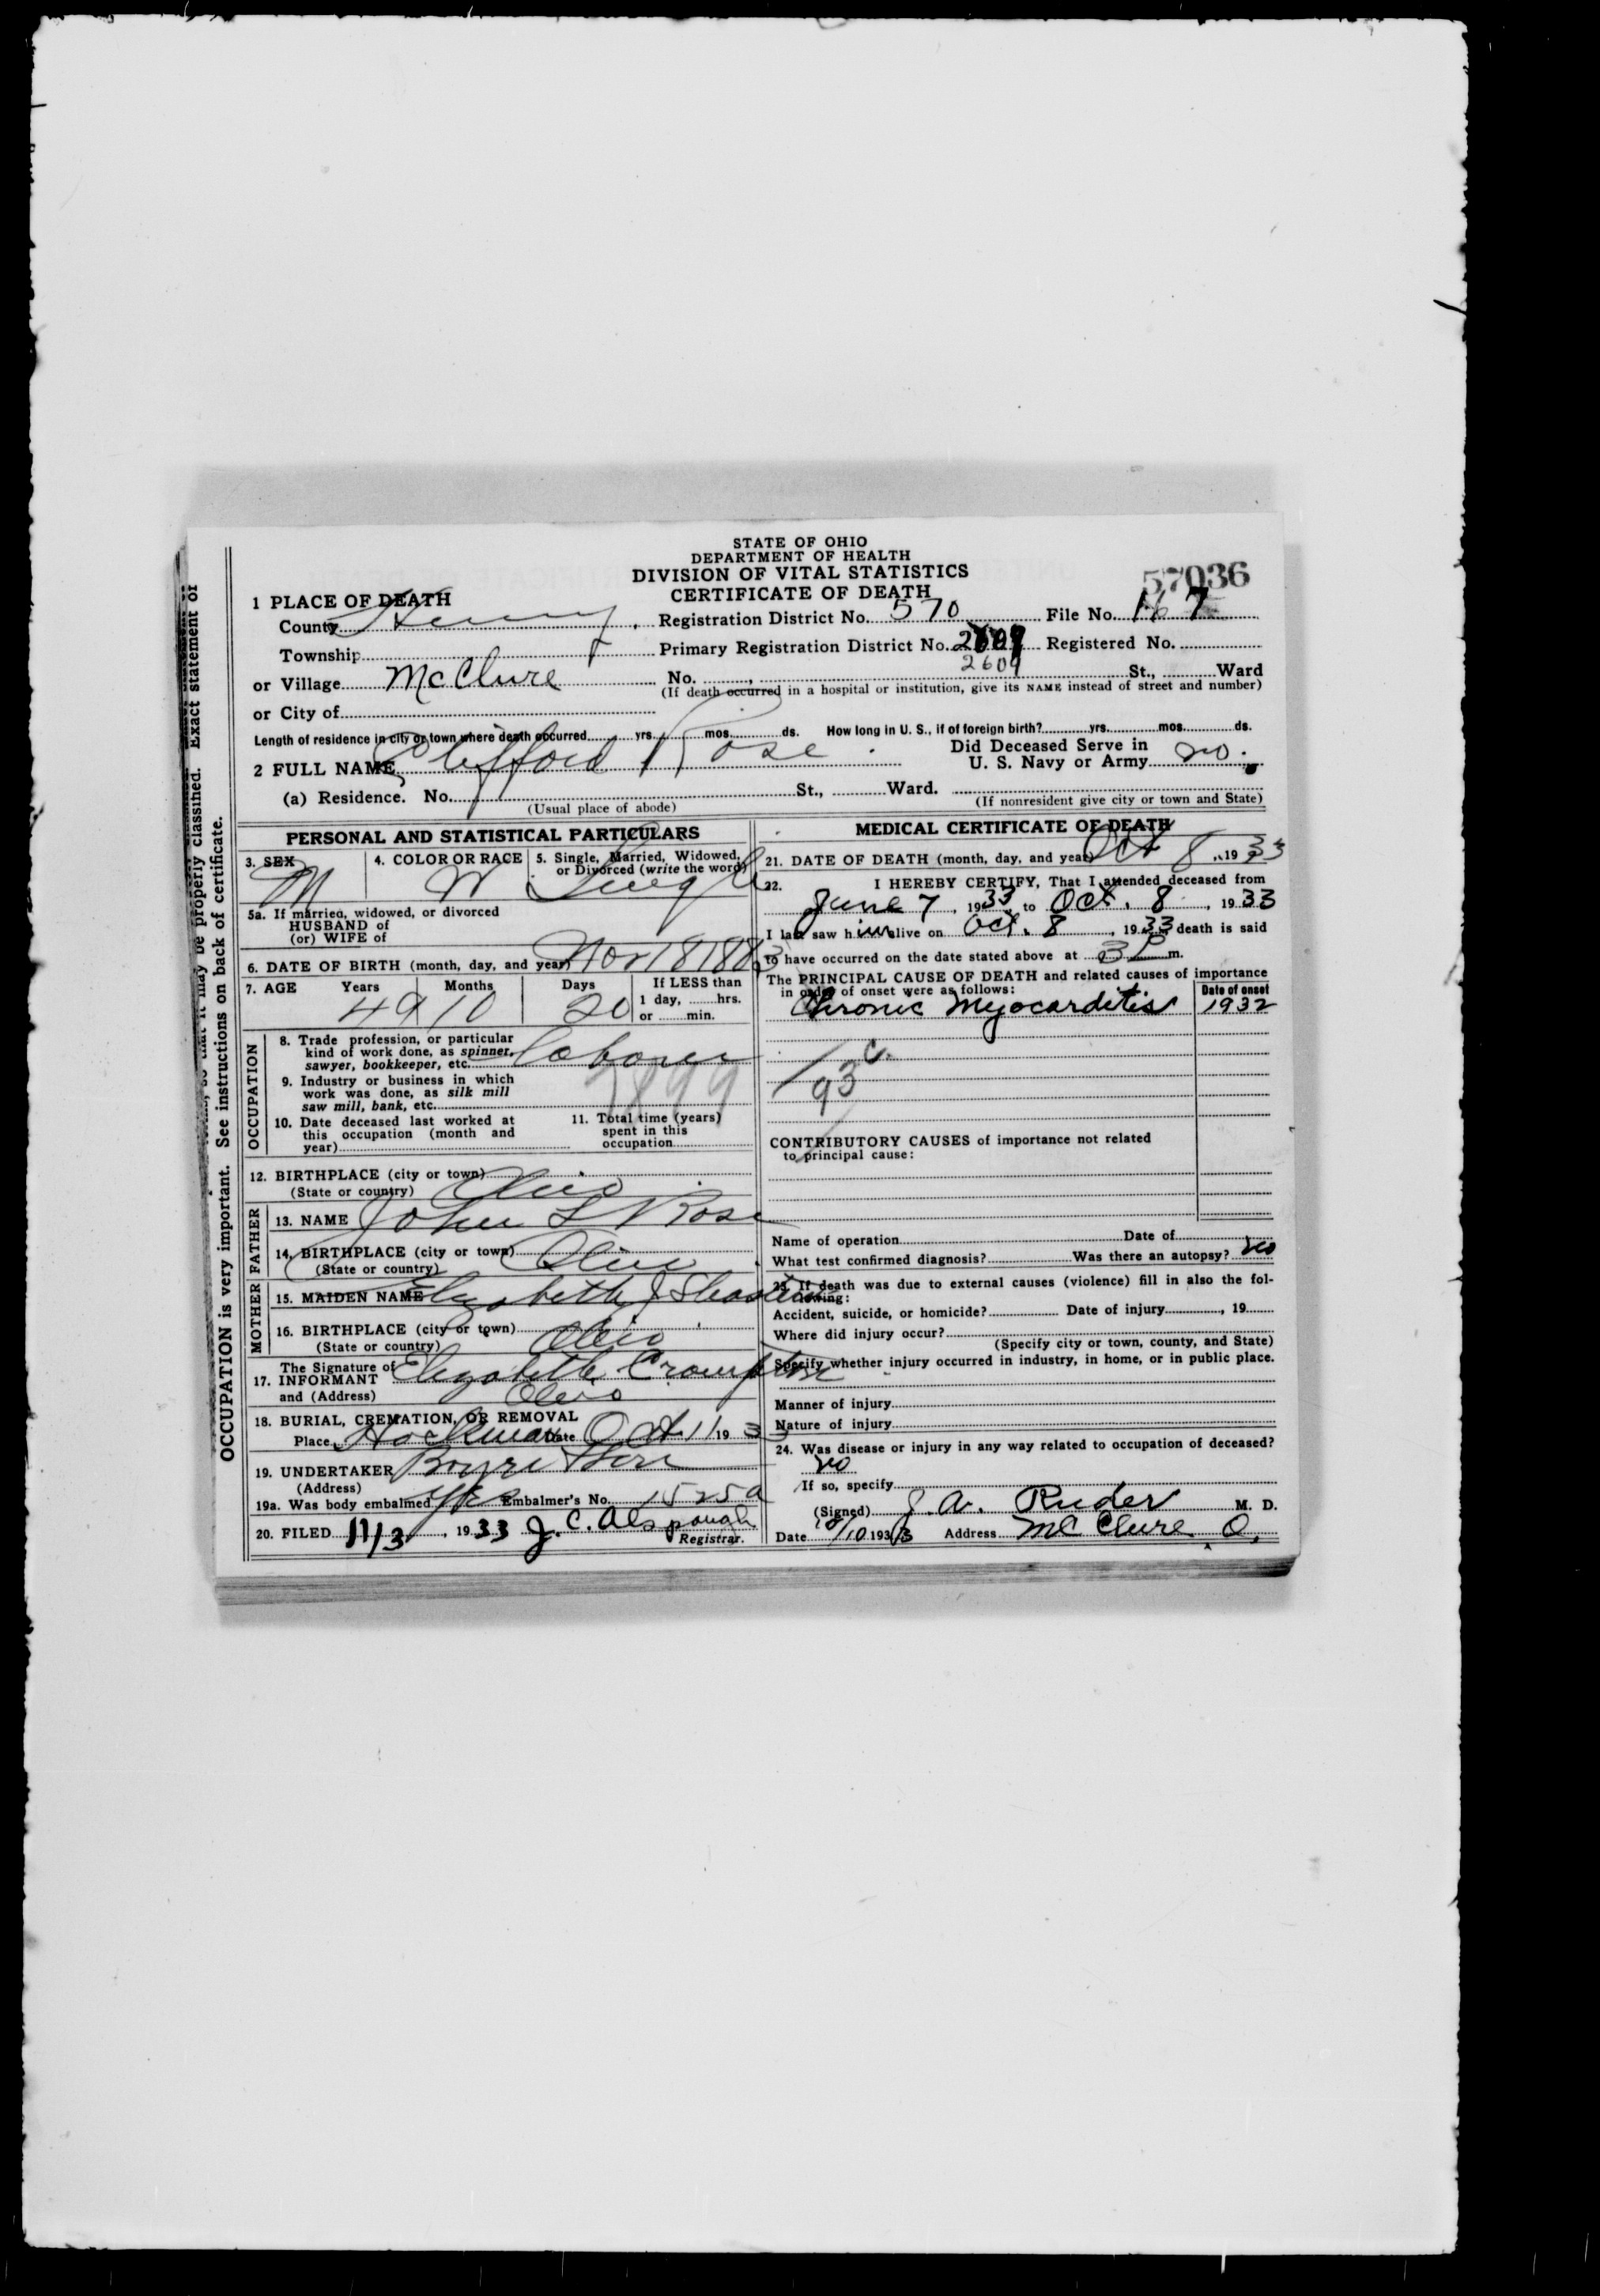 STATE OF OHIO
DEPARTMENT OF HEALTH
DIVISION OF VITAL STATISTICS
CERTIFICATE OF DEATH
57036
1 PLACE OF DEATH
County Henry Registration District No. 570 File No. 167
Township Primary Registration District No. 2609 Registered No.
2609
or Village McClure No. , St., Ward
(If death occurred in a hospital or institution, give its NAME instead of street and number)
or City of
Length of residence in city or town where death occurred yrs. mos. ds. How long in U. S., if of foreign birth? yrs. mos. ds.
2 FULL NAME Clifford Rose Did Deceased Serve in U. S. Navy or Army no.
(a) Residence. No. St., Ward.
(Usual place of abode) (If nonresident give city or town and State)
PERSONAL AND STATISTICAL PARTICULARS
3. SEX M
4. COLOR OR RACE W
5. Single, Married, Widowed, or Divorced (write the word) Single
5a. If married, widowed, or divorced
HUSBAND of
(or) WIFE of
6. DATE OF BIRTH (month, day, and year) Nov 18 1883
7. AGE Years 49 Months 10 Days 20 If LESS than
1 day, hrs.
or min.
OCCUPATION
8. Trade profession, or particular
kind of work done, as spinner,
sawyer, bookkeeper, etc. laborer
9. Industry or business in which
work was done, as silk mill
saw mill, bank, etc. 7899
10. Date deceased last worked at
this occupation (month and
year)
11. Total time (years)
spent in this
occupation
12. BIRTHPLACE (city or town)
(State or country) Ohio
FATHER
13. NAME John L Rose
14. BIRTHPLACE (city or town) Ohio
(State or country)
MOTHER
15. MAIDEN NAME Elizabeth J
16. BIRTHPLACE (city or town)
(State or country) Ohio
The Signature of
17. INFORMANT Elizabeth Crompton
and (Address) Ohio
18. BURIAL, CREMATION, OR REMOVAL
Place Hockman Date Oct 11 1933
19. UNDERTAKER
(Address)
19a. Was body embalmed yes Embalmer's No. 1525a
20. FILED 11/3, 1933 J. C. Alspaugh
Registrar.
MEDICAL CERTIFICATE OF DEATH
21. DATE OF DEATH (month, day, and year) Oct 8, 1933
22. I HEREBY CERTIFY, That I attended deceased from
June 7, 1933, to Oct. 8, 1933
I last saw him alive on Oct. 8, 1933, death is said
to have occurred on the date stated above at 3 P m.
The PRINCIPAL CAUSE OF DEATH and related causes of importance
in order of onset were as follows: Date of onset
Chronic Myocarditis 1932
93 c.
CONTRIBUTORY CAUSES of importance not related
to principal cause:
Name of operation Date of
What test confirmed diagnosis? Was there an autopsy? no
23. If death was due to external causes (violence) fill in also the following:
Accident, suicide, or homicide? Date of injury, 19
Where did injury occur?
(Specify city or town, county, and State)
Specify whether injury occurred in industry, in home, or in public place.
Manner of injury
Nature of injury
24. Was disease or injury in any way related to occupation of deceased?
no
If so, specify
(Signed) J. A. Rieder M. D.
Date 10/10 1933 Address McClure O.
OCCUPATION is very important. See instructions on back of certificate.
may be properly classified. Exact statement of